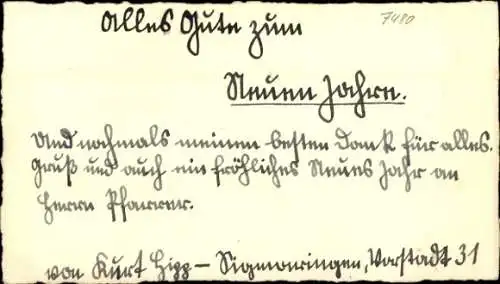 7480
Alles Gute zum
Neuen Jahre.
Und nochmals meinen besten Dank für alles.
Gruß und auch ein fröhliches Neues Jahr an
Herrn Pfarrer.
von Kurt Hipp - Sigmaringen, Vorstadt 31